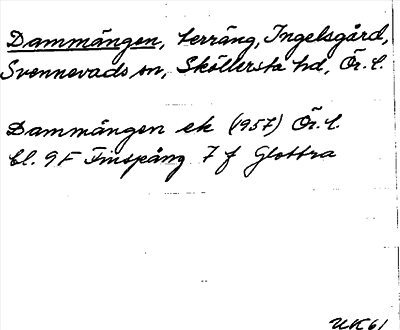 Dammängen, terräng, Ingelsgård,
Svennevads sn, Sköllersta hd, Ör. l.
Dammängen ek (1957) Ör. l.
bl. 9F Finspång 7 f Glottra
UK 61